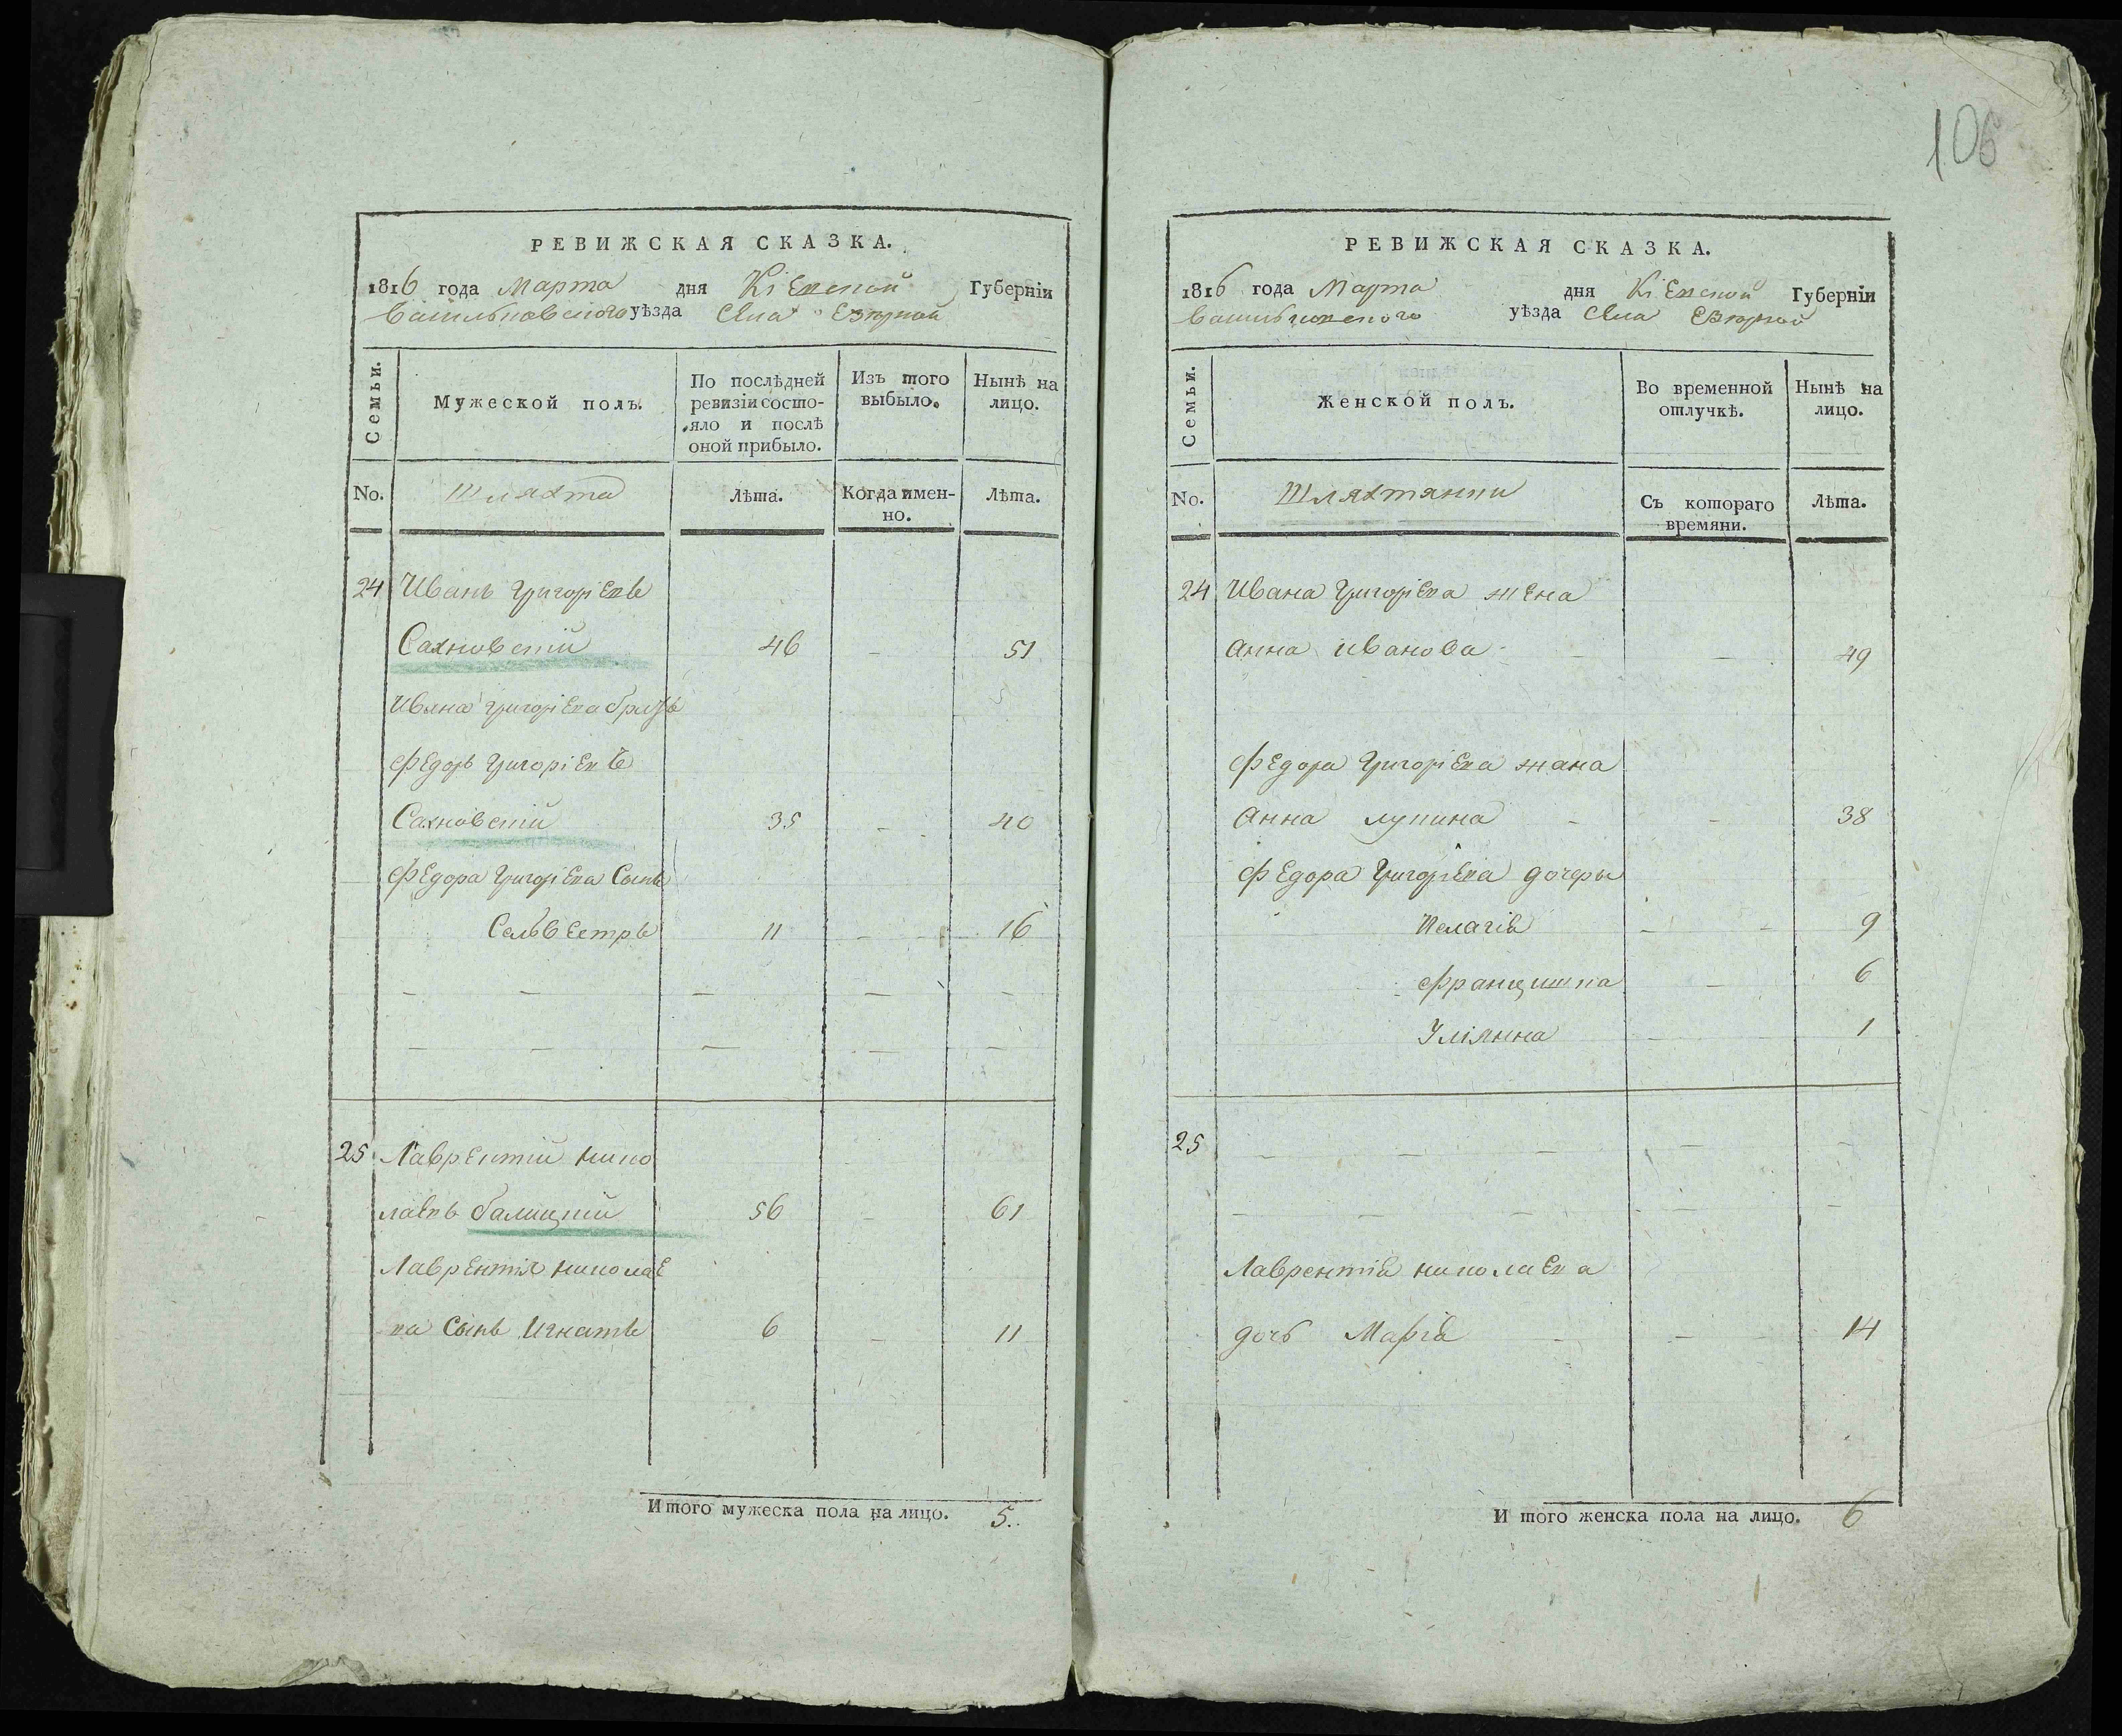 106
РЕВИЖСКАЯ СКАЗКА.
1816 года Марта дня Кіевской Губерніи
Васильковскаго уѣзда Села Езерной
Семьи.
Мужеской полъ.
По послѣдней ревизіи состояло и послѣ оной прибыло.
Изъ того выбыло.
Нынѣ на лицо.
No.
Шляхта
Лѣта.
Когда имен-
но.
Лѣта.
24 Иванъ Григоріевъ
Сахновскій 46 - 51
Ивана Григоріева братъ
Федоръ Григоріевъ
Сахновскій 35 - - 40
Федора Григоріева Сынъ
Селвестръ 11 - - 16
- - - - -
- - - - -
25 Лаврентій Нико
лаевъ балицкій 56 - 61
Лаврентія николае
ва Сынъ Игнатъ 6 - 11
Итого мужеска пола на лицо. 5.
РЕВИЖСКАЯ СКАЗКА.
1816 года Марта дня Кіевской Губерніи
Васильковского уѣзда Села Езерной
Семьи.
Женской полъ.
Во временной отлучкѣ.
Нынѣ на лицо.
No.
Шляхтянки
Съ котораго
времяни.
Лѣта.
24 Ивана Григоріева жена
Анна Иванова - - - 49
Федора Григоріева жана
Анна лукина - - 38
Федора Григоріева дочеры
Пелагія - - 9
Францишка - 6
Уліянна - - 1
25 - - - - -
- - - - - -
Лаврентія николаева
дочь Марія - - - 14
И того женска пола на лицо. 6